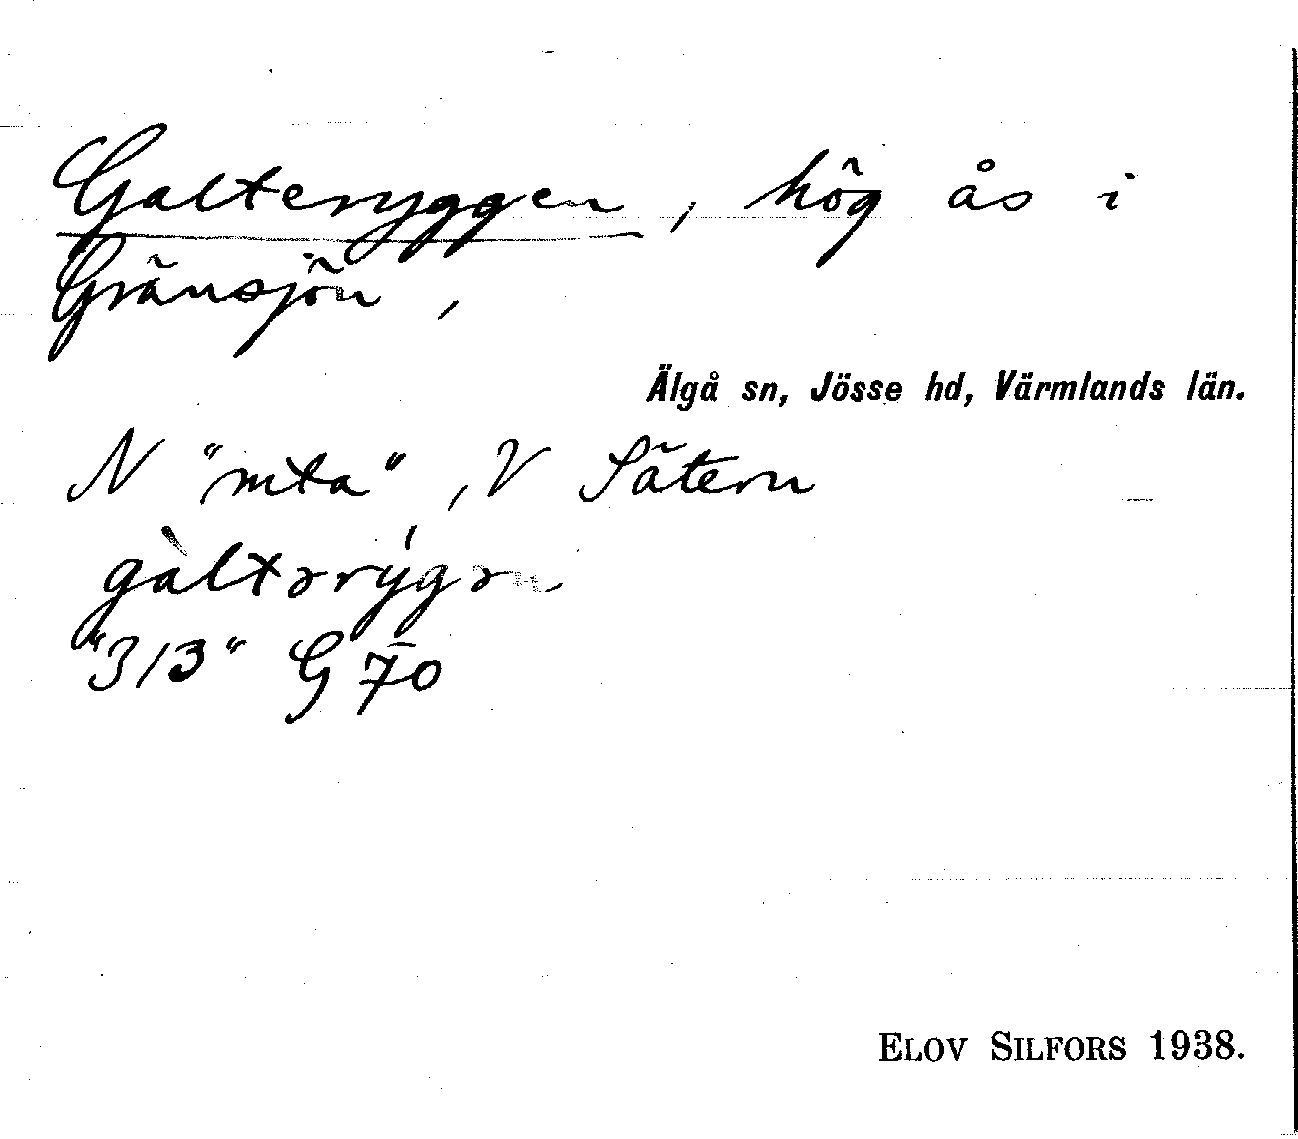 Galteryggen, hög ås i
Gränsjön,
Älgå sn, Jösse hd, Värmlands län.
N "mta", V Sätern
gàltərýgən
"3/3" G 70
ELOV SILFORS 1938.